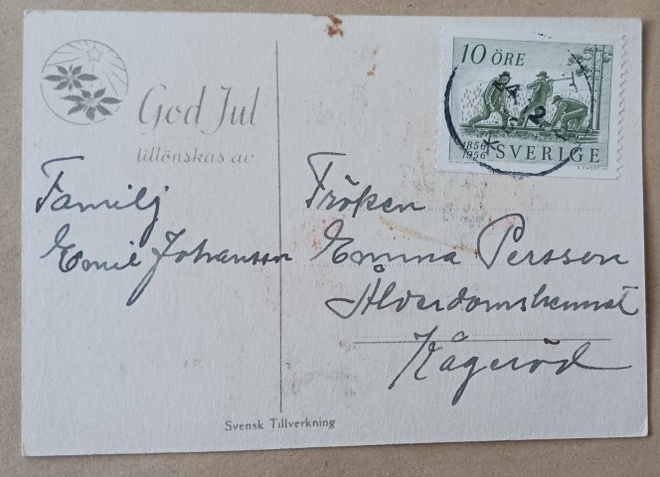 God Jul
tillönskas av
Familj
Emil Johansson
10 ÖRE
1856
1956 SVERIGE
Fröken
Emma Persson
Ålderdomshemmet
Kågeröd
Svensk Tillverkning